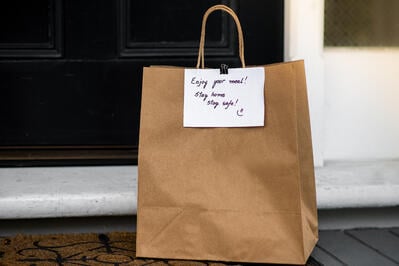 Enjoy your meal!
Stay home
stay safe!